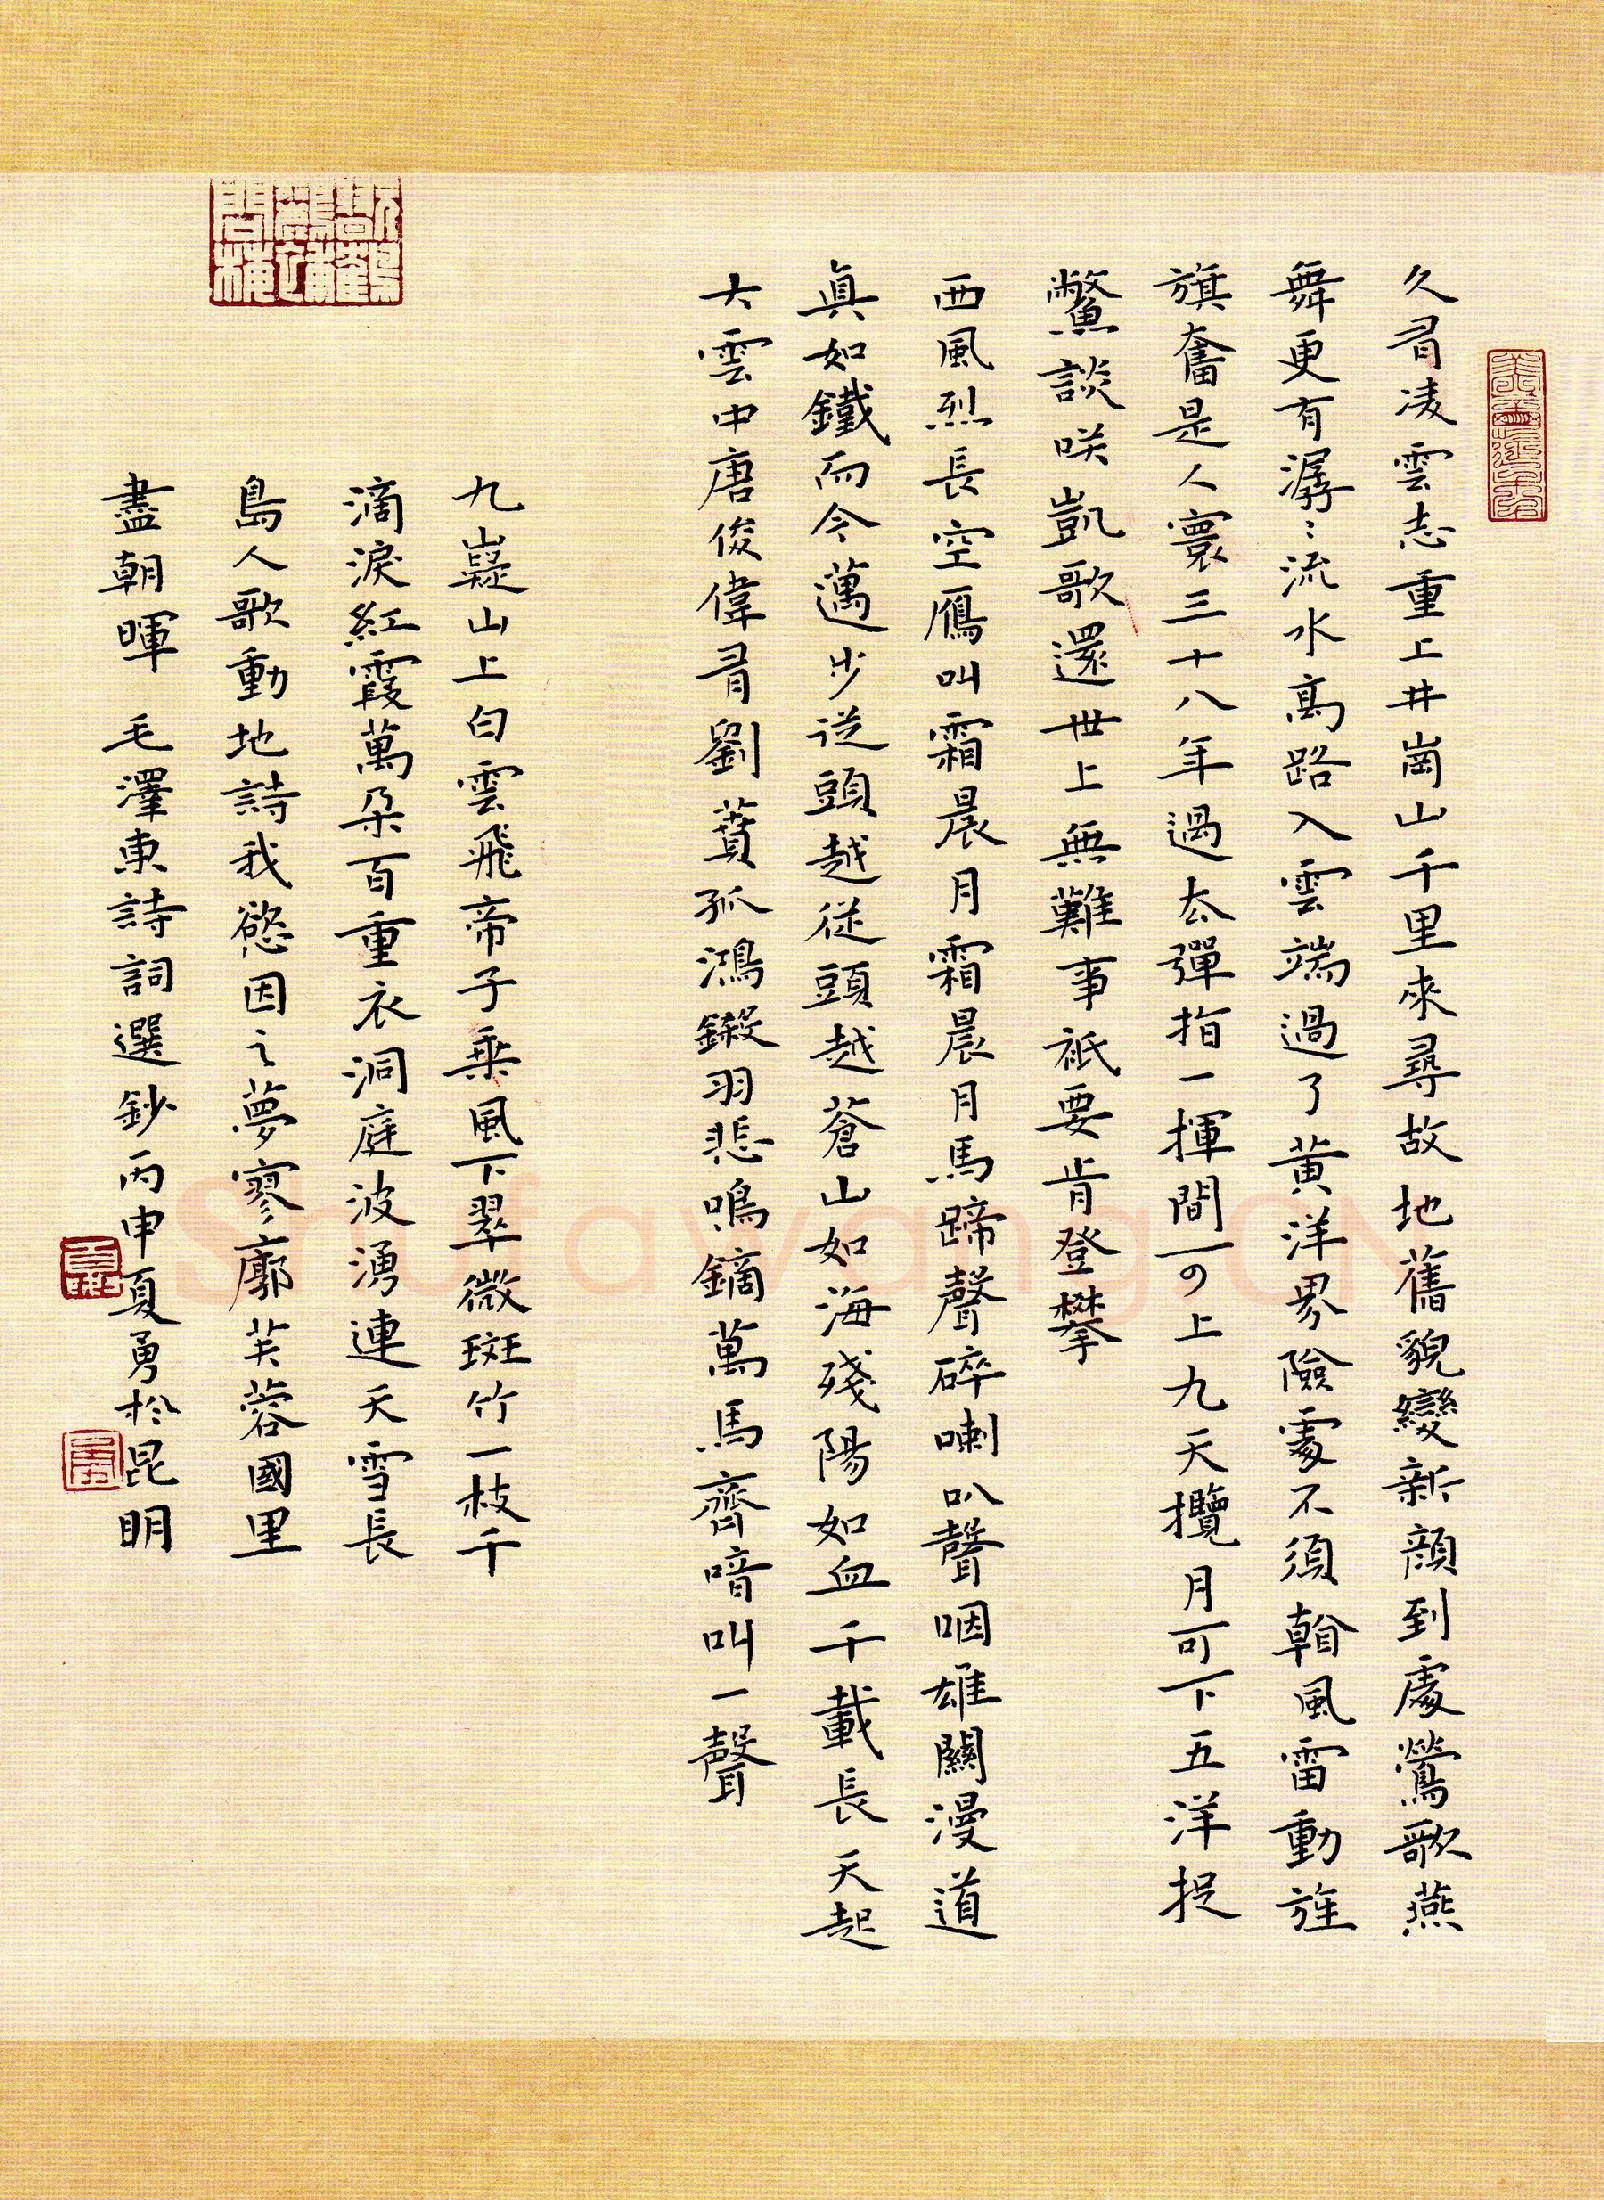 久有凌雲志重上井崗山千里來尋故地舊貌變新顔到處鶯歌燕
舞更有潺〻流水高路入雲端過了黄洋界險處不須看風雷動旌
旗奮是人寰三十八年過去彈指一揮間可上九天攬月可下五洋捉
鱉談笑凱歌還世上無難事祇要肯登攀
西風烈長空雁叫霜晨月霜晨月馬蹄聲碎喇叭聲咽雄關漫道
真如鐵而今邁步從頭越從頭越蒼山如海殘陽如血千載長天起
大雲中唐俊偉有劉蕡孤鴻鎩羽悲鳴鏑萬馬齊喑叫一聲
九嶷山上白雲飛帝子乘風下翠微斑竹一枝千
滴淚紅霞萬朵百重衣洞庭波湧連天雪長
島人歌動地詩我慾因之夢寥廓芙蓉國里
盡朝暉 毛澤東詩詞選鈔丙申夏勇於昆明
Shufawang.CN